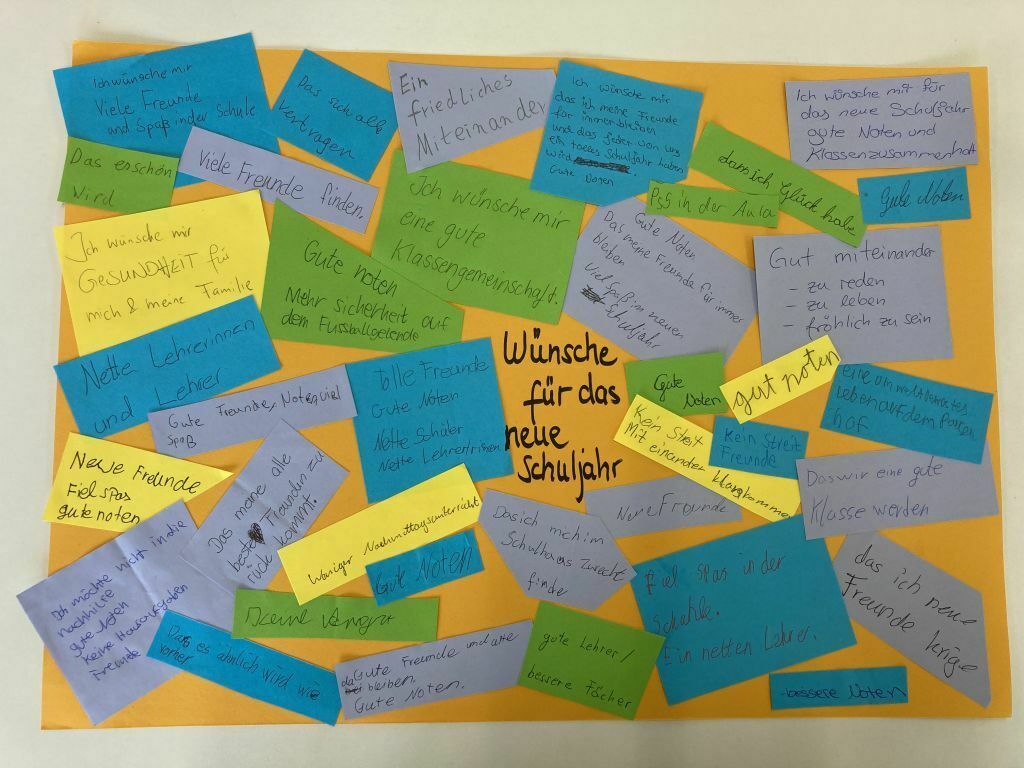 Ich wünsche mir
Viele Freunde
und Spaß in der Schule
Das sich alle
Vertragen
Ein
friedliches
Miteinander
Ich wünsche mir
das ich meine Freunde
für immer bleiben
und das jeder von uns
ein tolles Schuljahr haben
wird
Gute Noten
Ich wünsche mit für
das neue Schuljahr
gute Noten und
Klassenzusammenhalt
Das es schön
wird
Viele Freunde finden.
Ich wünsche mir
eine gute
Klassengemeinschaft.
dass ich Glück habe
PSG in der Aula
Gute Noten
Ich wünsche mir
GESUNDHEIT für
mich & meine Familie
Gute noten
Mehr sicherheit auf
dem Fussballgelende
Gute Noten
Das meine Freunde für immer
bleiben
Viel Spaß im neuen
Schuljahr
Gut miteinander
- zu reden
- zu leben
- fröhlich zu sein
Nette Lehrerinnen
und Lehrer
Gute Freunde, Noten, viel
Spaß
Tolle Freunde
Gute Noten
Nette Schüler
Nette Lehrer/innen
Wünsche
für das
neue
Schuljahr
Gute
Noten
gut noten
Kein Streit
Mit einander klarkommen
Kein Streit
Freunde
eine
Leben auf dem Pausen
hof
Das wir eine gute
Klasse werden
Neue Freunde
Fiel spas
gute noten
Das meine alle
besten Freundin zu
rück kommt.
Weniger Nachmittagsunterricht
Gute Noten
Das ich mich im
Schulhaus zurecht
finde
Neue Freunde
Ich möchte nicht in die
nachhilfe
gute Noten
Keine Hausaufgaben
Freunde
Keine
Dass es ähnlich wird wie
vorher
Gute Freunde und alte
da bleiben.
Gute Noten.
gute Lehrer/
bessere Fächer
Fiel spas in der
Schuhle.
Ein netten Lehrer.
das ich neue
Freunde krige
- bessere Noten